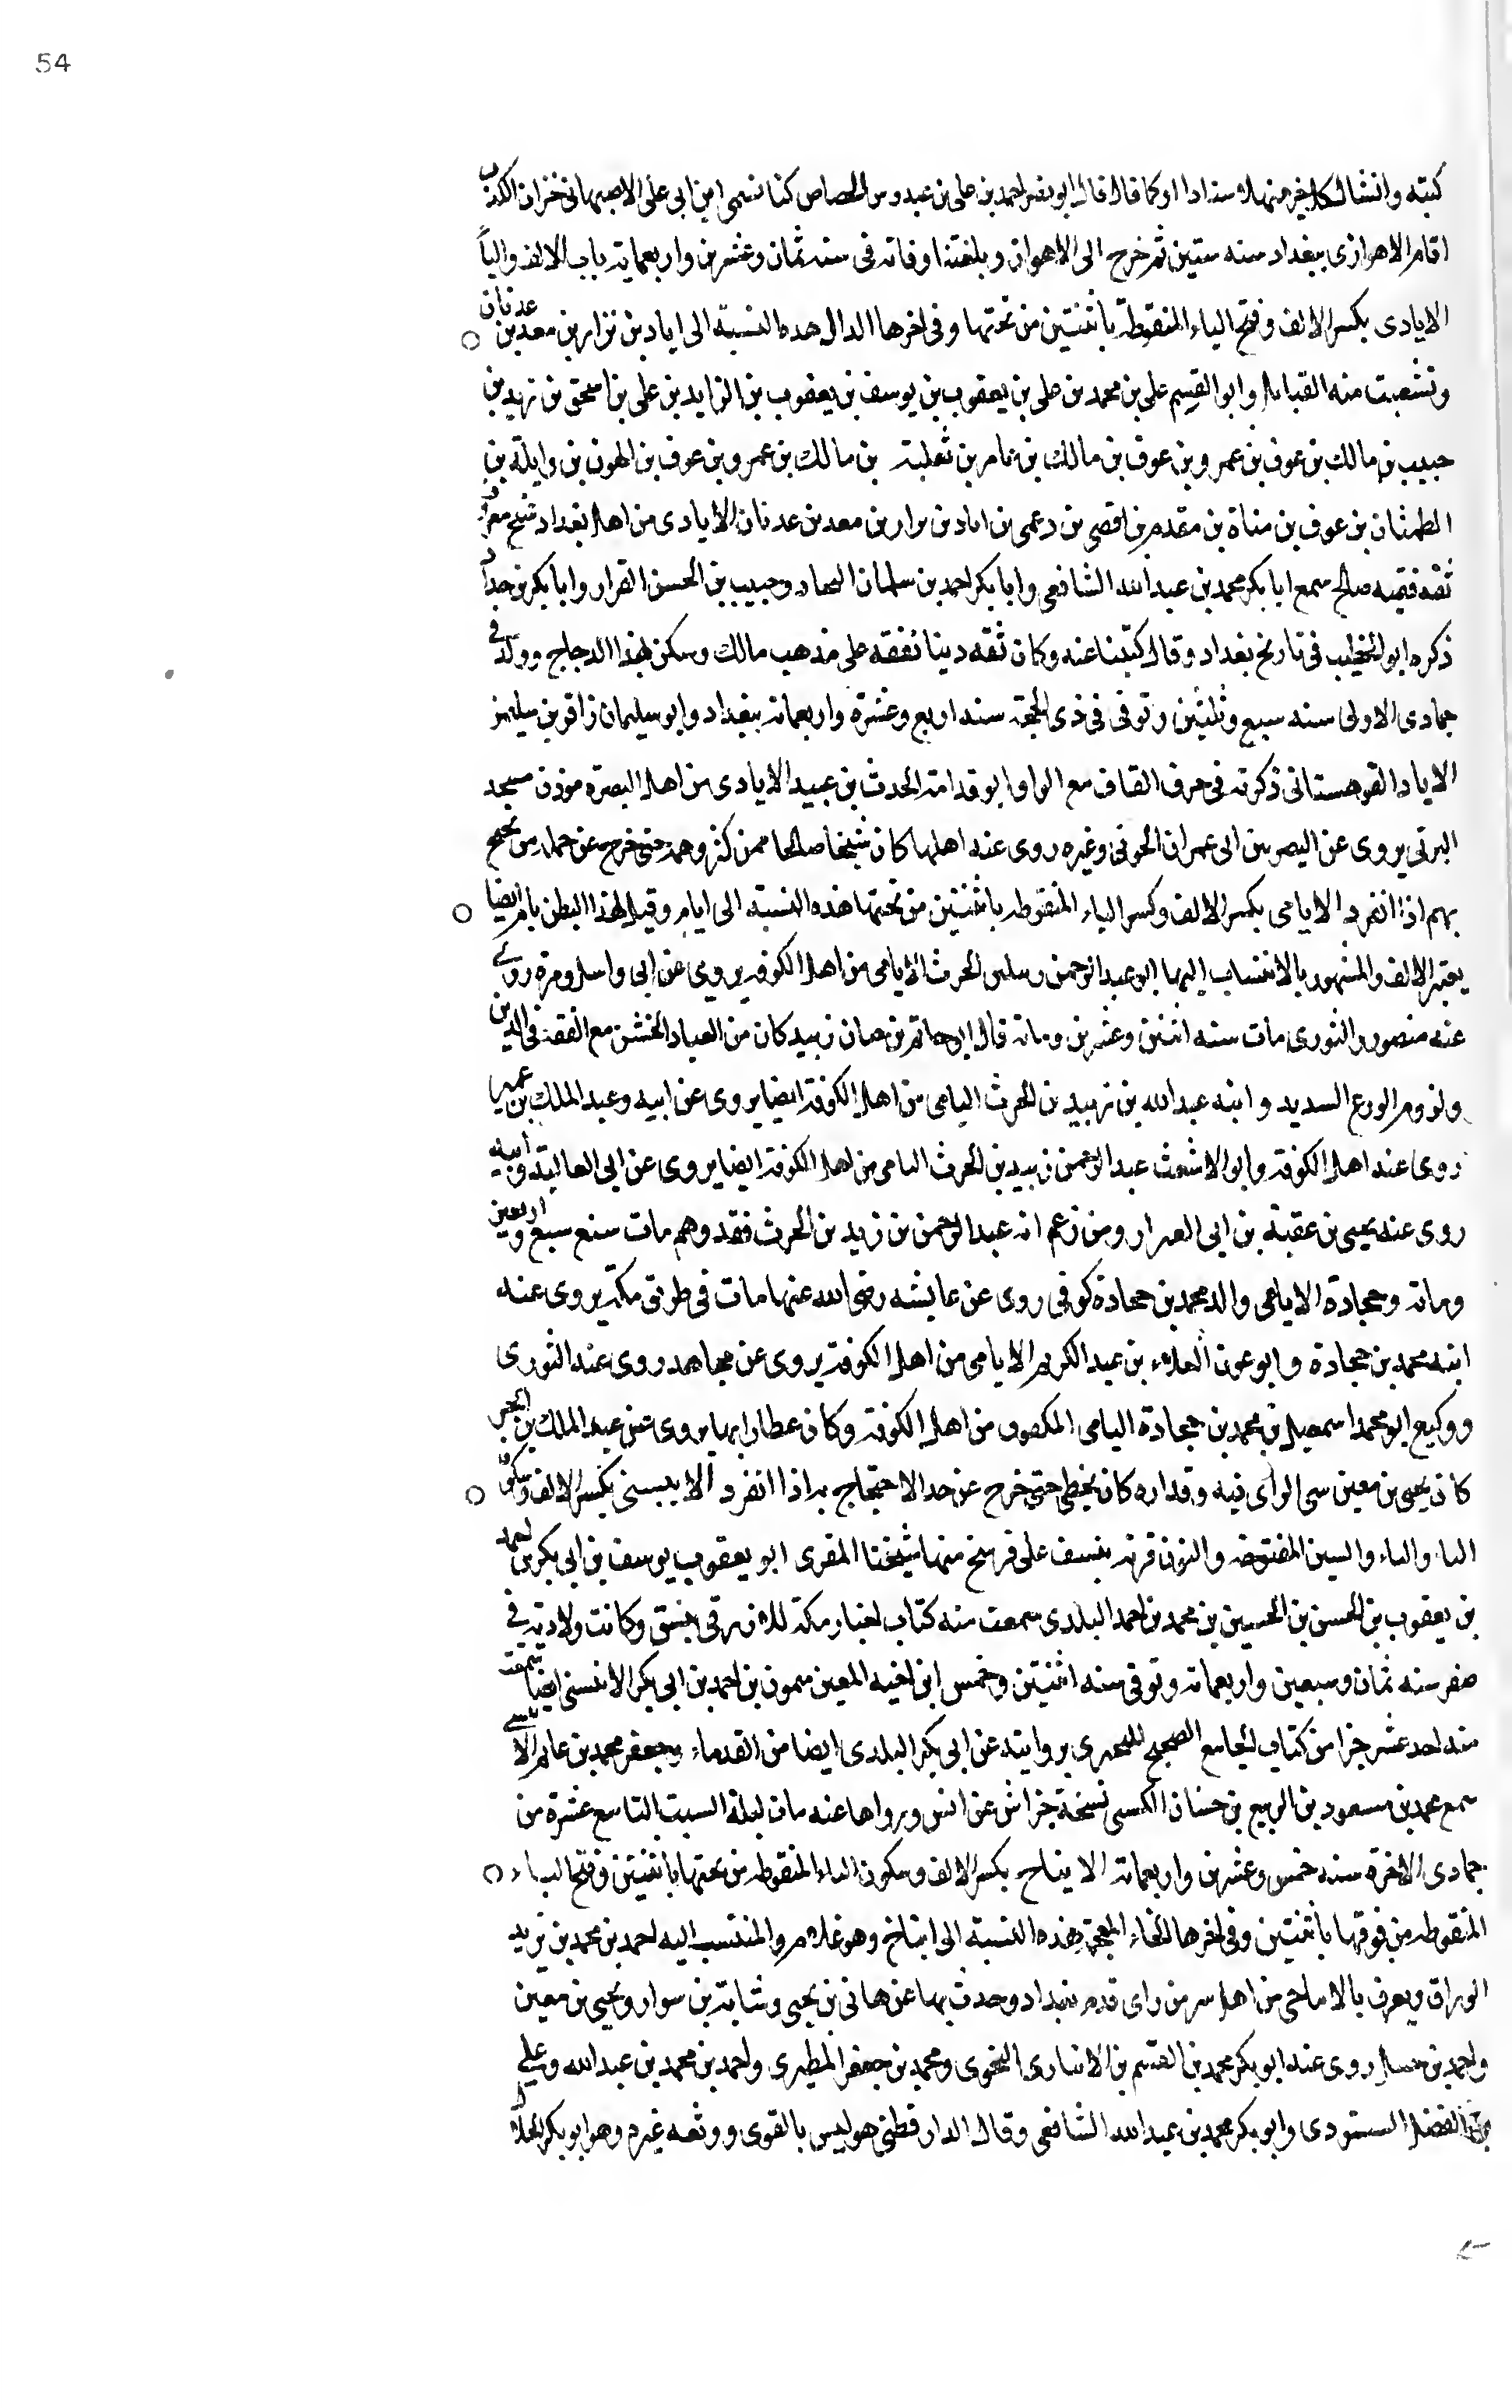 54
كتبه وانشا لكل خبر منها اسنادا او كما قال قال ابو نصر احمد بن على بن عبدوس الجصاص كنا نسمى ابن ابى على الاصبهانى خزان الكذب
اقام الاهوازى ببغداد سنه ستين ثم خرج الى الاهواز وبلغتنا وفاته فى سنه ثمان وعشرين واربعمايه باب الالف واليا
الايادى بكسر الالف وفتح الياء المنقوطة باثنتين من تحتها وفى اخرها الدال هذه النسبة الى اياد بن نزار بن معد بن عدنان
وتشعبت منه القبايل وابو القسم على بن محمد بن على بن يعقوب بن يوسف بن يعقوب بن الزايد بن على بن اسحق بن زيد بن
حبيب بن مالك بن عوف بن عمرو بن عوف بن مالك بن عامر بن ثعلبة بن مالك بن عمرو بن عوف بن الهون بن وايلة بن
الطمثان بن عوف بن مناة بن مقدم بن افصى بن دعمى بن اياد بن نزار بن معد بن عدنان الايادى من اهل بغداد شيخ
ثقه فقيه صالح سمع ابا بكر محمد بن عبد الله الشافعى وابا بكر احمد بن سلمان النجاد وحبيب بن الحسن القزاز وابا بكر
ذكره ابو الخطيب فى تاريخ بغداد وقال كتبنا عنه وكان ثقه دينا تفقه على مذهب مالك وسكن لهذا الدجاج وولد فى
جمادى الاولى سنه سبع وثلثين وتوفى فى ذى الحجة سنه اربع وعشرة واربعمايه ببغداد وابو سليمان زافر بن سليمن
الايادا القوهستانى ذكرته فى حرف القاف مع الواو ابو قدامة الحرث بن عبيد الايادى من اهل البصرة موذن مسجد
البرتى يروى عن البصريين ابى عمران الجونى وغيره روى عنه اهلها كان شيخا صالحا ممن كثر وهمه حتى خرج عن جمله من يحتج
بهم اذا انفرد الايامى بكسر الالف وكسر الياء المنقوطه باثنتين من تحتها هذه النسبة الى ايام وقيل لهذا البطن يام ايضا
بغير الالف والمشهور بالانتساب اليها ابو عبد الرحمن الحرث الايامى من اهل الكوفة يروى عن ابى وايل ومرة روى
عنه منصور والثورى مات سنه اثنتين وعشرين ومايه قال ابو حاتم بن حبان زبيد كان من العباد الخشن مع الفقه فى الدين
ولزوم الورع السديد وابنه عبد الله بن زبيد بن الحرث اليامى من اهل الكوفة ايضا يروى عن ابيه وعبد الملك بن عمير
روى عنه اهل الكوفة وابو الاشعث عبد الرحمن زبيد بن الحرث اليامى من اهل الكوفة ايضا يروى عن ابى العالية وابيه
روى عنه يحيى بن عقبة بن ابى العيزار ومن زعم انه عبد الرحمن بن زيد بن الحرث فقد وهم مات سنع سبع واربعين
ومايه وجحادة الايامى والد محمد بن جحادة كوفى روى عن عايشه رضى الله عنها مات فى طريق مكة يروى عنه
ابنه محمد بن جحادة وابو عون العلاء بن عبد الكريم الايامى من اهل الكوفة يروى عن مجاهد روى عنه الثورى
ووكيع ابو محمد اسمعيل بن محمد بن جحادة اليامى المكفوف من اهل الكوفة وكان عطارا بها يروى عن عبد الملك بن
كان يحيى بن معين سى الراى فيه كان يخطى حتى خرج عن حد الاحتجاج به اذا انفرد الايبسنى بكسر الالف وسكون
الياء والباء والسين المفتوحه والنون قرية بنسف على فرسخ منها شيخنا المقرى ابو يعقوب يوسف بن ابى بكر بن احمد
بن يعقوب بن الحسن بن الحسين بن محمد بن احمد البلدى سمعت منه كتاب اخبار مكة للازرقى وكانت ولادته فى
صفر سنه ثمان وسبعين واربعمايه وتوفى سنه اثنتين وخمس ابن اخيه المعين ميمون بن احمد بن ابى بكر ايضا سمعت
منه احد عشر جزا من كتاب الجامع الصحيح بروايته عن ابى بكر البلدى ايضا من القدماء وجعفر محمد بن عالم
سمع محمد بن مسعود بن الربيع بن حسان الكسى نسخة خراش عن انس ورواها عنه مات ليلة السبت التاسع عشرة من
جمادى الاخرة سنه خمس وعشرين واربعمايه الايتاخ بكسر الالف وسكون الياء المنقوطه من تحتها باثنتين وفتح التاء
المنقوطه من فوقها باثنتين وفى اخرها الخاء المعجمة هذه النسبة الى ايتاخ وهو غلام والمنتسب اليه احمد بن محمد بن يزيد
الوراق ويعرف بالايتاخى من اهل سر من راى قدم بغداد وحدث بها عن هانى بن يحيى وشبابة بن سوار ويحيى بن معين
واحمد بن حنبل روى عنه ابو بكر محمد بن القسم بن الانبارى النحوى ومحمد بن جعفر المطيرى واحمد بن محمد بن عبد الله وعلى
بن الفضل الستورى وابو بكر محمد بن عبد الله الشافعى وقال الدارقطنى هو ليس بالقوى ووثقه غيره وهو ابو بكر